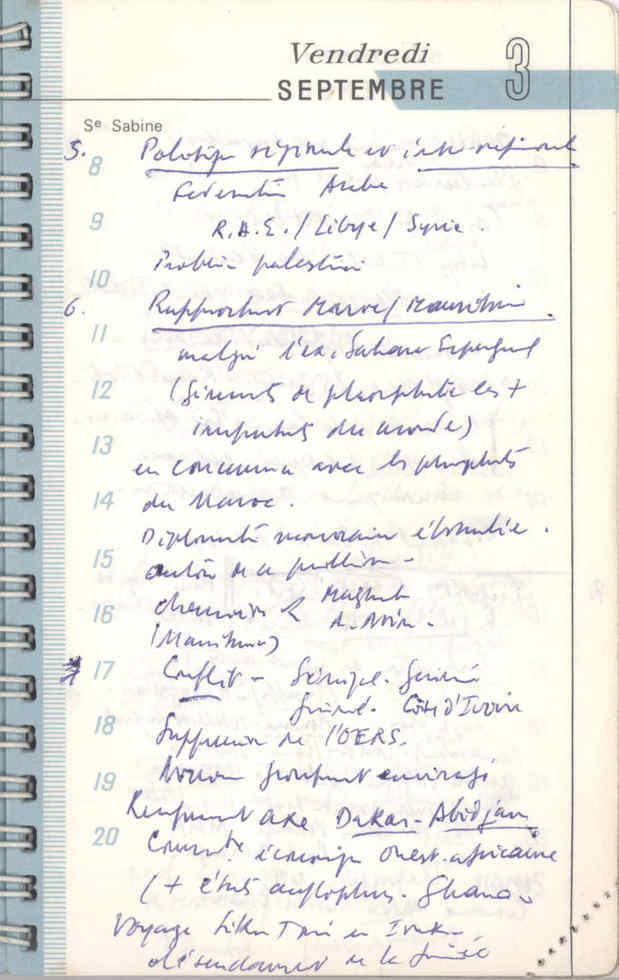 Vendredi 3
SEPTEMBRE
Sᵉ Sabine
5. Politique régionale et inter-régionale
8
Fédération Arabe
9
R.A.E./Libye/Syrie.
Problème palestinien
10
6. Rapprochement Maroc/Mauritanie.
11
malgré l'ex. Sahara Espagnol
12
(Gisements de phosphate les +
importants du monde)
13
en concurrence avec les phosphates
14
du Maroc.
Diplomatie marocaine
15
autour de ce problème
charnière Maghreb
16
A. Noire.
(Mauritanie)
7 17
Conflit - Sénégal. Guinée
Guinée. Côte d'Ivoire
18
Suppression de l'OERS.
19
Nouveau groupement envisagé
Renforcement axe Dakar-Abidjan
20
Communauté économique Ouest-africaine
(+ états anglophones. Ghana
Voyage en
de la Guinée